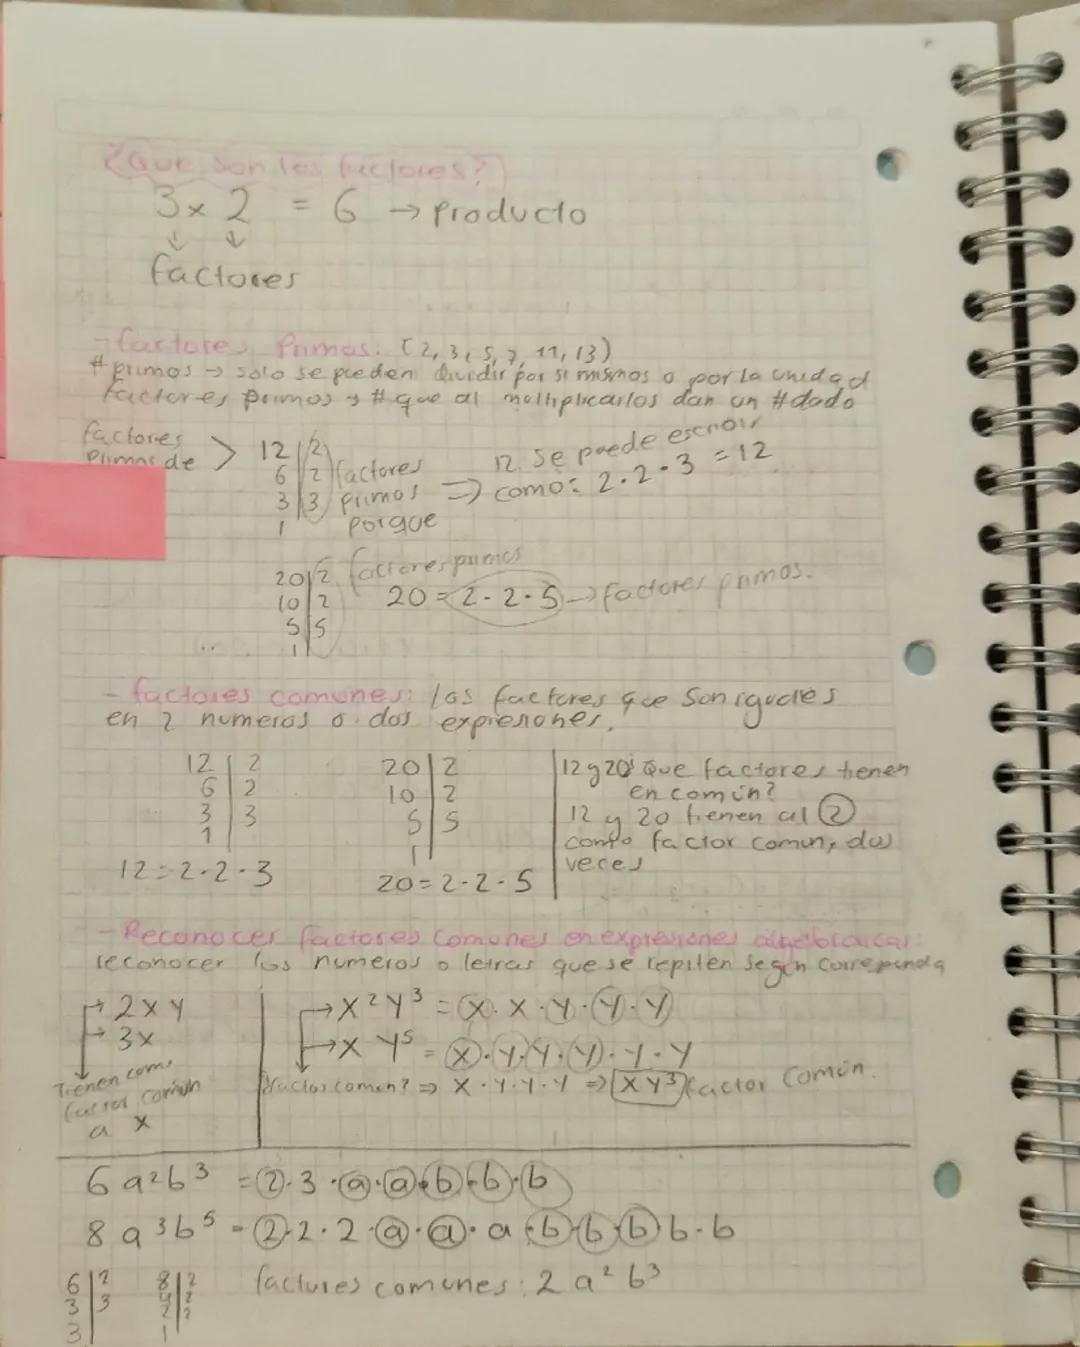 ¿Que son los factores?
3 x 2 = 6 → producto
↓ ↓
factores
- factores Primos: (2, 3, 5, 7, 11, 13)
# primos → solo se pueden dividir por si mismos o por la unidad
factores primos → # que al multiplicarlos dan un # dado
factores primos de > 12 | 2
6 | 2 factores
3 | 3 primos
1 porque
⇒ 12 se puede escribir
como: 2·2·3 = 12
20 | 2 factores primos
10 | 2 20 = 2·2·5 → factores primos.
5 | 5
1
- factores comunes: los factores que son iguales
en 2 numeros o dos expresiones.
12 | 2
6 | 2
3 | 3
1
12 = 2·2·3
20 | 2
10 | 2
5 | 5
1
20 = 2·2·5
12 y 20 Que factores tienen
en común?
12 y 20 tienen al 2
como factor comun, dos
veces
- Reconocer factores comunes en expresiones algebraicas:
reconocer los numeros o letras que se repiten segun corresponda
→ 2xy
→ 3x
Tienen como
factor común
a x
→ x²y³ = x·x·y·y·y
→ x y⁵ = x·y·y·y·y·y
factor comun? ⇒ x·y·y·y ⇒ xy³ factor común.
6a²b³ = 2·3·a·a·b·b·b
8a³b⁵ = 2·2·2·a·a·a·b·b·b·b·b
6 | 2
3 | 3
3
8 | 2
4 | 2
2 | 2
1
factores comunes: 2a²b³